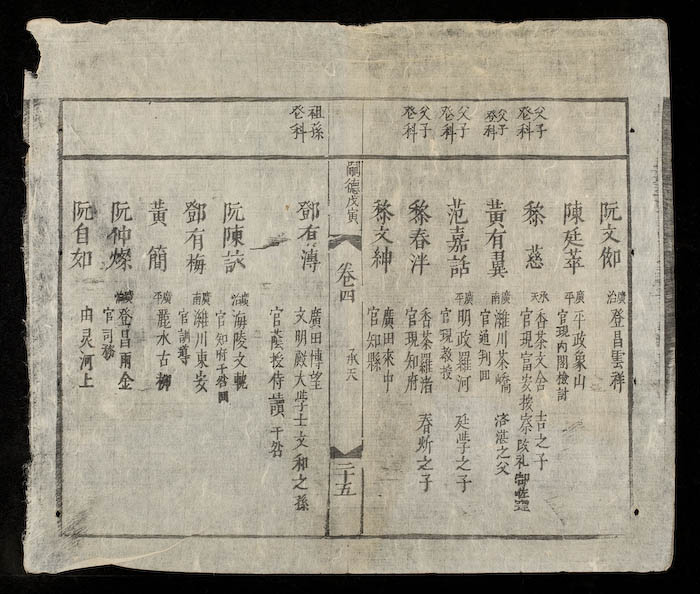 阮文仰
廣治
登昌雲祥
陳廷萃
廣平
平政象山
官現內閣檢討
父子
登科
黎慈
承天
香茶文舍
吉之子
官現富安按察改礼部
父子
登科
黃有翼
廣南
濰川茶嶠
洛湛之父
官通判回
父子
登科
范嘉話
廣平
明政羅河
廷學之子
官現教授
父子
登科
黎春泮
香茶羅渚
春炘之子
官現知府
黎文紳
廣田來中
官知縣
嗣德戊寅
卷四
承天
二十五
祖孫
登科
鄧有溥
廣田博望
文明殿大學士文和之孫
官蔭授侍讀
干咎
阮陳詼
廣治
海陵文軌
官知府干咎回
鄧有梅
廣南
濰川東安
官訓導
黃簡
廣平
麗水古柳
阮仲燦
登昌兩金
官司務
阮自如
由灵河上